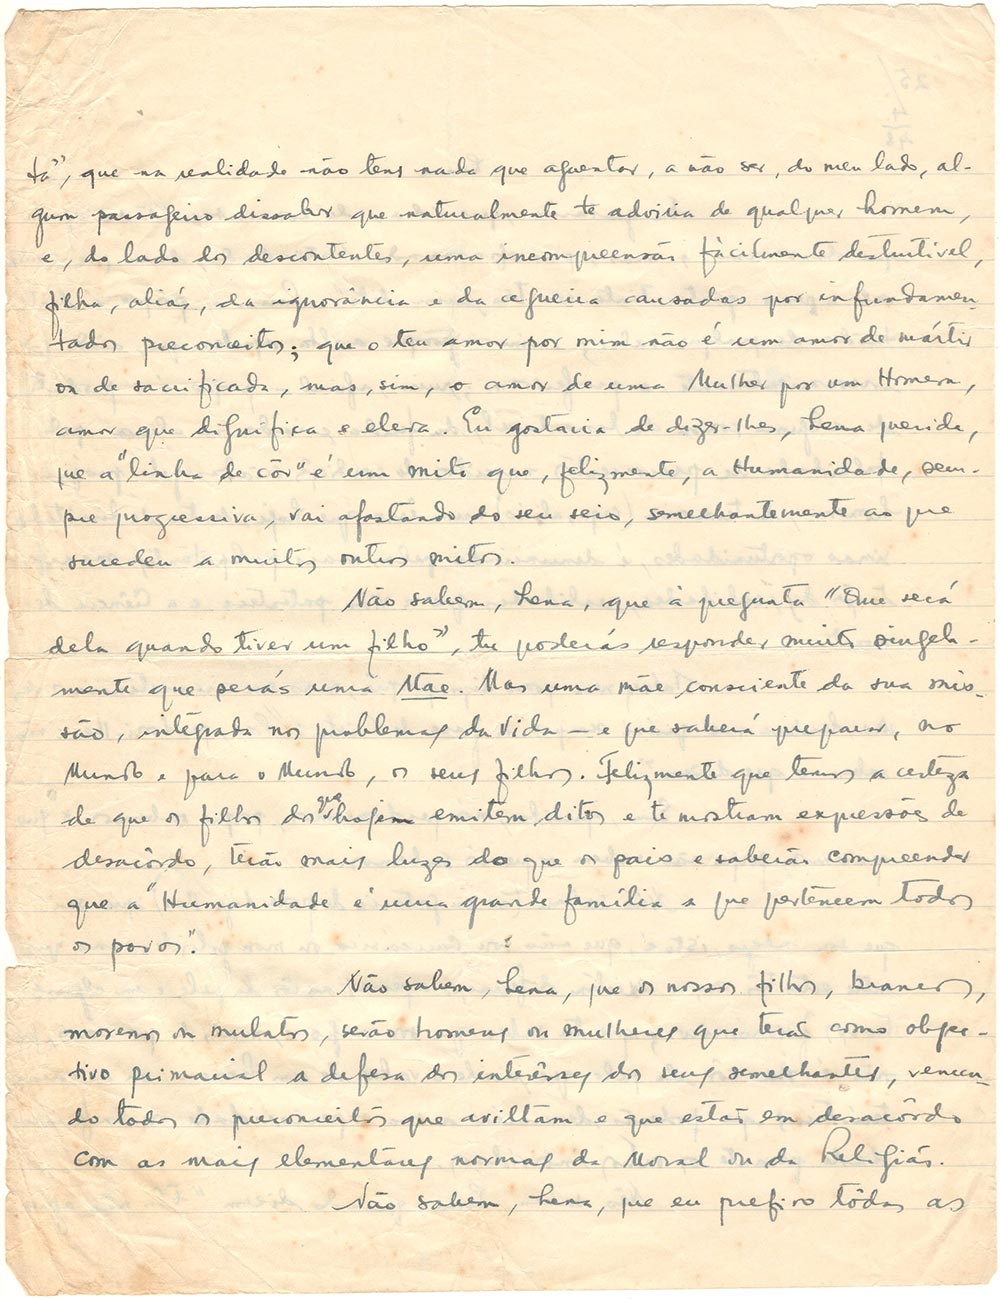 tá", que na realidade não tens nada que aguentar, a não ser, do meu lado, al-
gum passageiro dissabor que naturalmente te adviria de qualquer homem,
e, do lado dos descontentes, uma incompreensão fàcilmente destrutível,
filha, aliás, da ignorância e da cegueira causadas por infundamen-
tados preconceitos; que o teu amor por mim não é um amor de mártir
ou de sacrificada, mas, sim, o amor de uma Mulher por um Homem,
amor que dignifica e eleva. Eu gostaria de dizer-lhes, Lena querida,
que a "linha de côr" é um mito que, felizmente, a Humanidade, sem-
pre progressiva, vai afastando do seu seio, semelhantemente ao que
sucedeu a muitos outros mitos.
Não sabem, Lena, que à pregunta "Que será
dela quando tiver um filho", tu poderás responder muito singela-
mente que serás uma Mãe. Mas uma mãe consciente da sua mis-
são, integrada nos problemas da Vida — e que saberá preparar, no
Mundo e para o Mundo, os seus filhos. Felizmente que temos a certeza
de que os filhos dos que hoje emitem ditos e te mostram expressões de
desacôrdo, terão mais luzes do que os pais e saberão compreender
que a "Humanidade é uma grande família a que pertencem todos
os povos".
Não sabem, Lena, que os nossos filhos, brancos,
morenos ou mulatos, serão homens ou mulheres que terão como objec-
tivo primacial a defesa dos interêsses dos seus semelhantes, vencen-
do todos os preconceitos que aviltam e que estão em desacôrdo
com as mais elementares normas da Moral ou da Religião.
Não sabem, Lena, que eu prefiro tôdas as